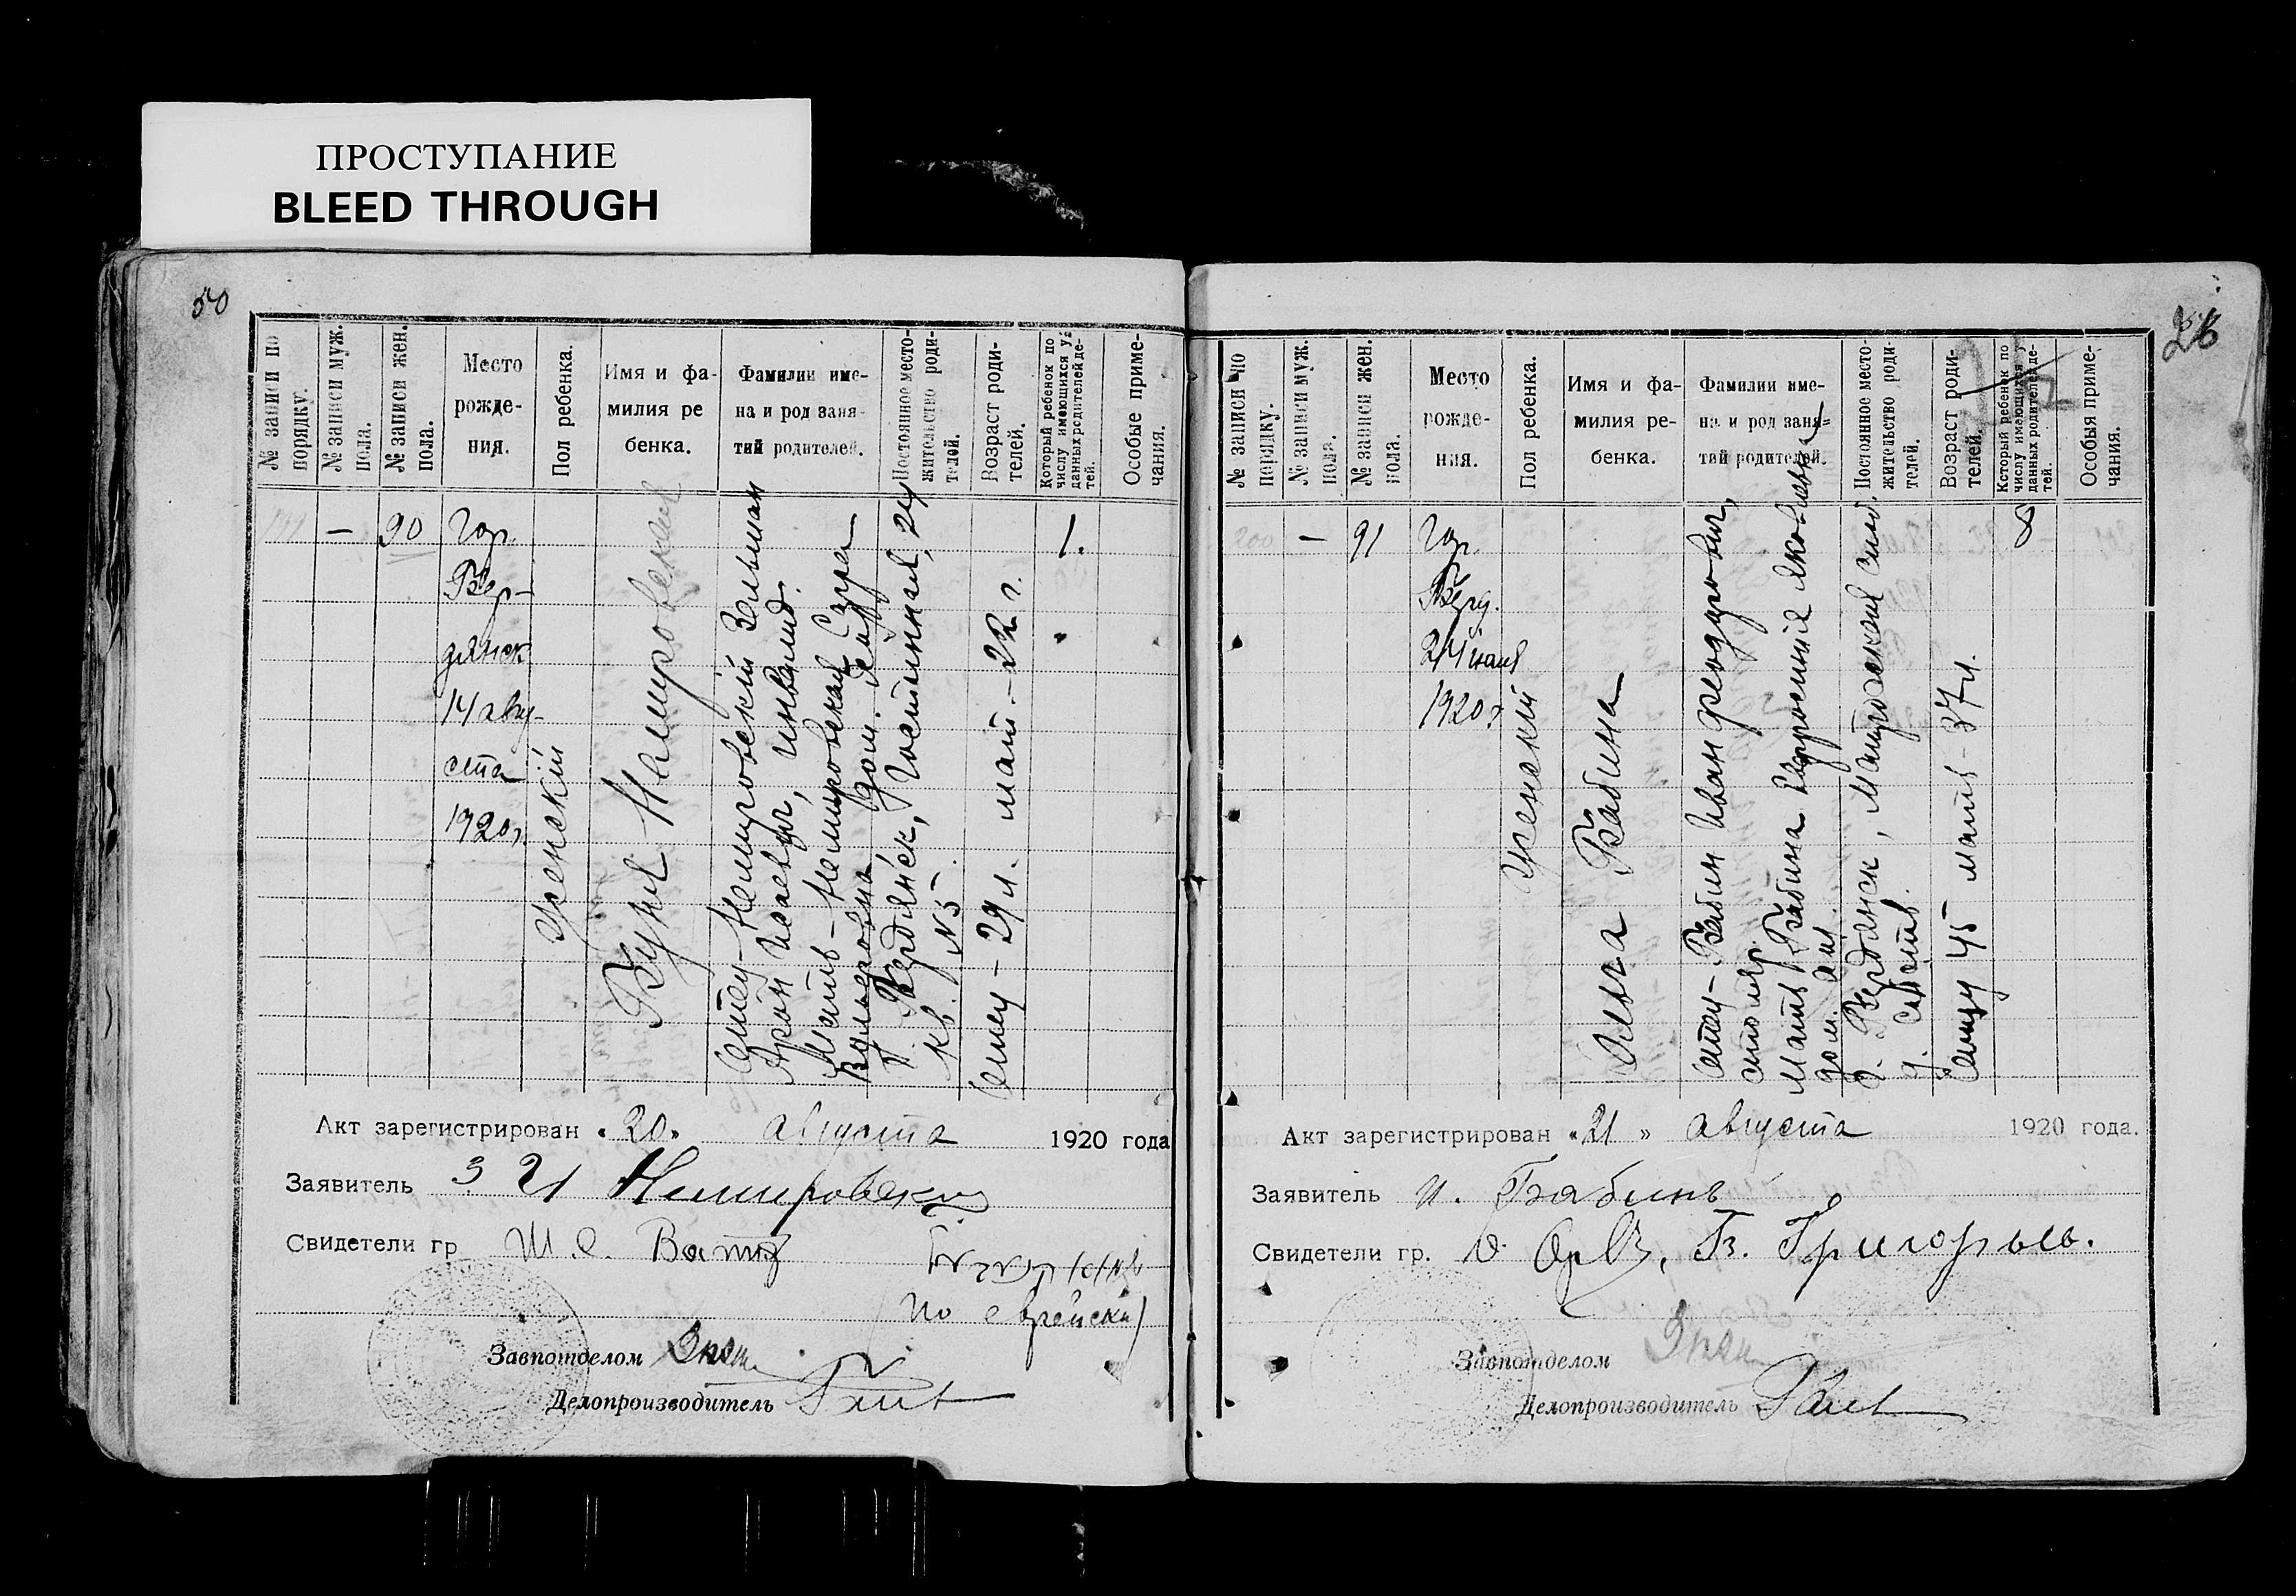 ПРОСТУПАНИЕ
BLEED THROUGH
50
№ записи по
порядку.
№ записи муж.
пола.
№ записи жен.
пола.
Место
рожде-
ния.
Пол ребенка.
Имя и фа-
милия ре
бенка.
Фамилии име-
на и род заня-
тий родителей.
Постоянное место-
жительство роди-
телей.
Возраст роди-
телей.
Который ребенок по
числу имеющихся у
данных родителей де-
тей.
Особые приме-
чания.
— 90
Гор.
Бер-
дянск
14 авгу-
ста
1920 г.
Женский
Буня Немировская
Отец – Немировский Зельман
Арон Исаевич, инвалид.
Мать – Немировская Сарра
Вульфовна дом.
г. Бердянск, Гостинная, 24
кв. №5
Отец – 29 л. мать – 22 г.
1.
Акт зарегистрирован « 20 » августа 1920 года
Заявитель З И Немировский
Свидетели гр. Ш. С.
(по еврейски)
Завпотделом
Делопроизводитель
26
№ записи по
порядку.
№ записи муж.
пола.
№ записи жен.
пола.
Место
рожде-
ния.
Пол ребенка.
Имя и фа-
милия ре-
бенка.
Фамилии име-
на и род заня-
тий родителей.
Постоянное место-
жительство роди-
телей.
Возраст роди-
телей.
Который ребенок по
числу имеющихся у
данных родителей де-
тей.
Особыя приме-
чания.
200 — 91
Гор.
Берд.
1920 г.
Женский
Ольга Бабина
Отец – Бабин Иван Феодорович,
столяр.
Мать Бабина Евфросиния Яковлевна
дом.
г. Бердянск, Матросская слоб.
Отцу 45 мать – 37 л.
8
Акт зарегистрирован « 21 » августа 1920 года.
Заявитель И. Бабинъ
Свидетели гр. Григорьев.
Завпотделом
Делопроизводитель